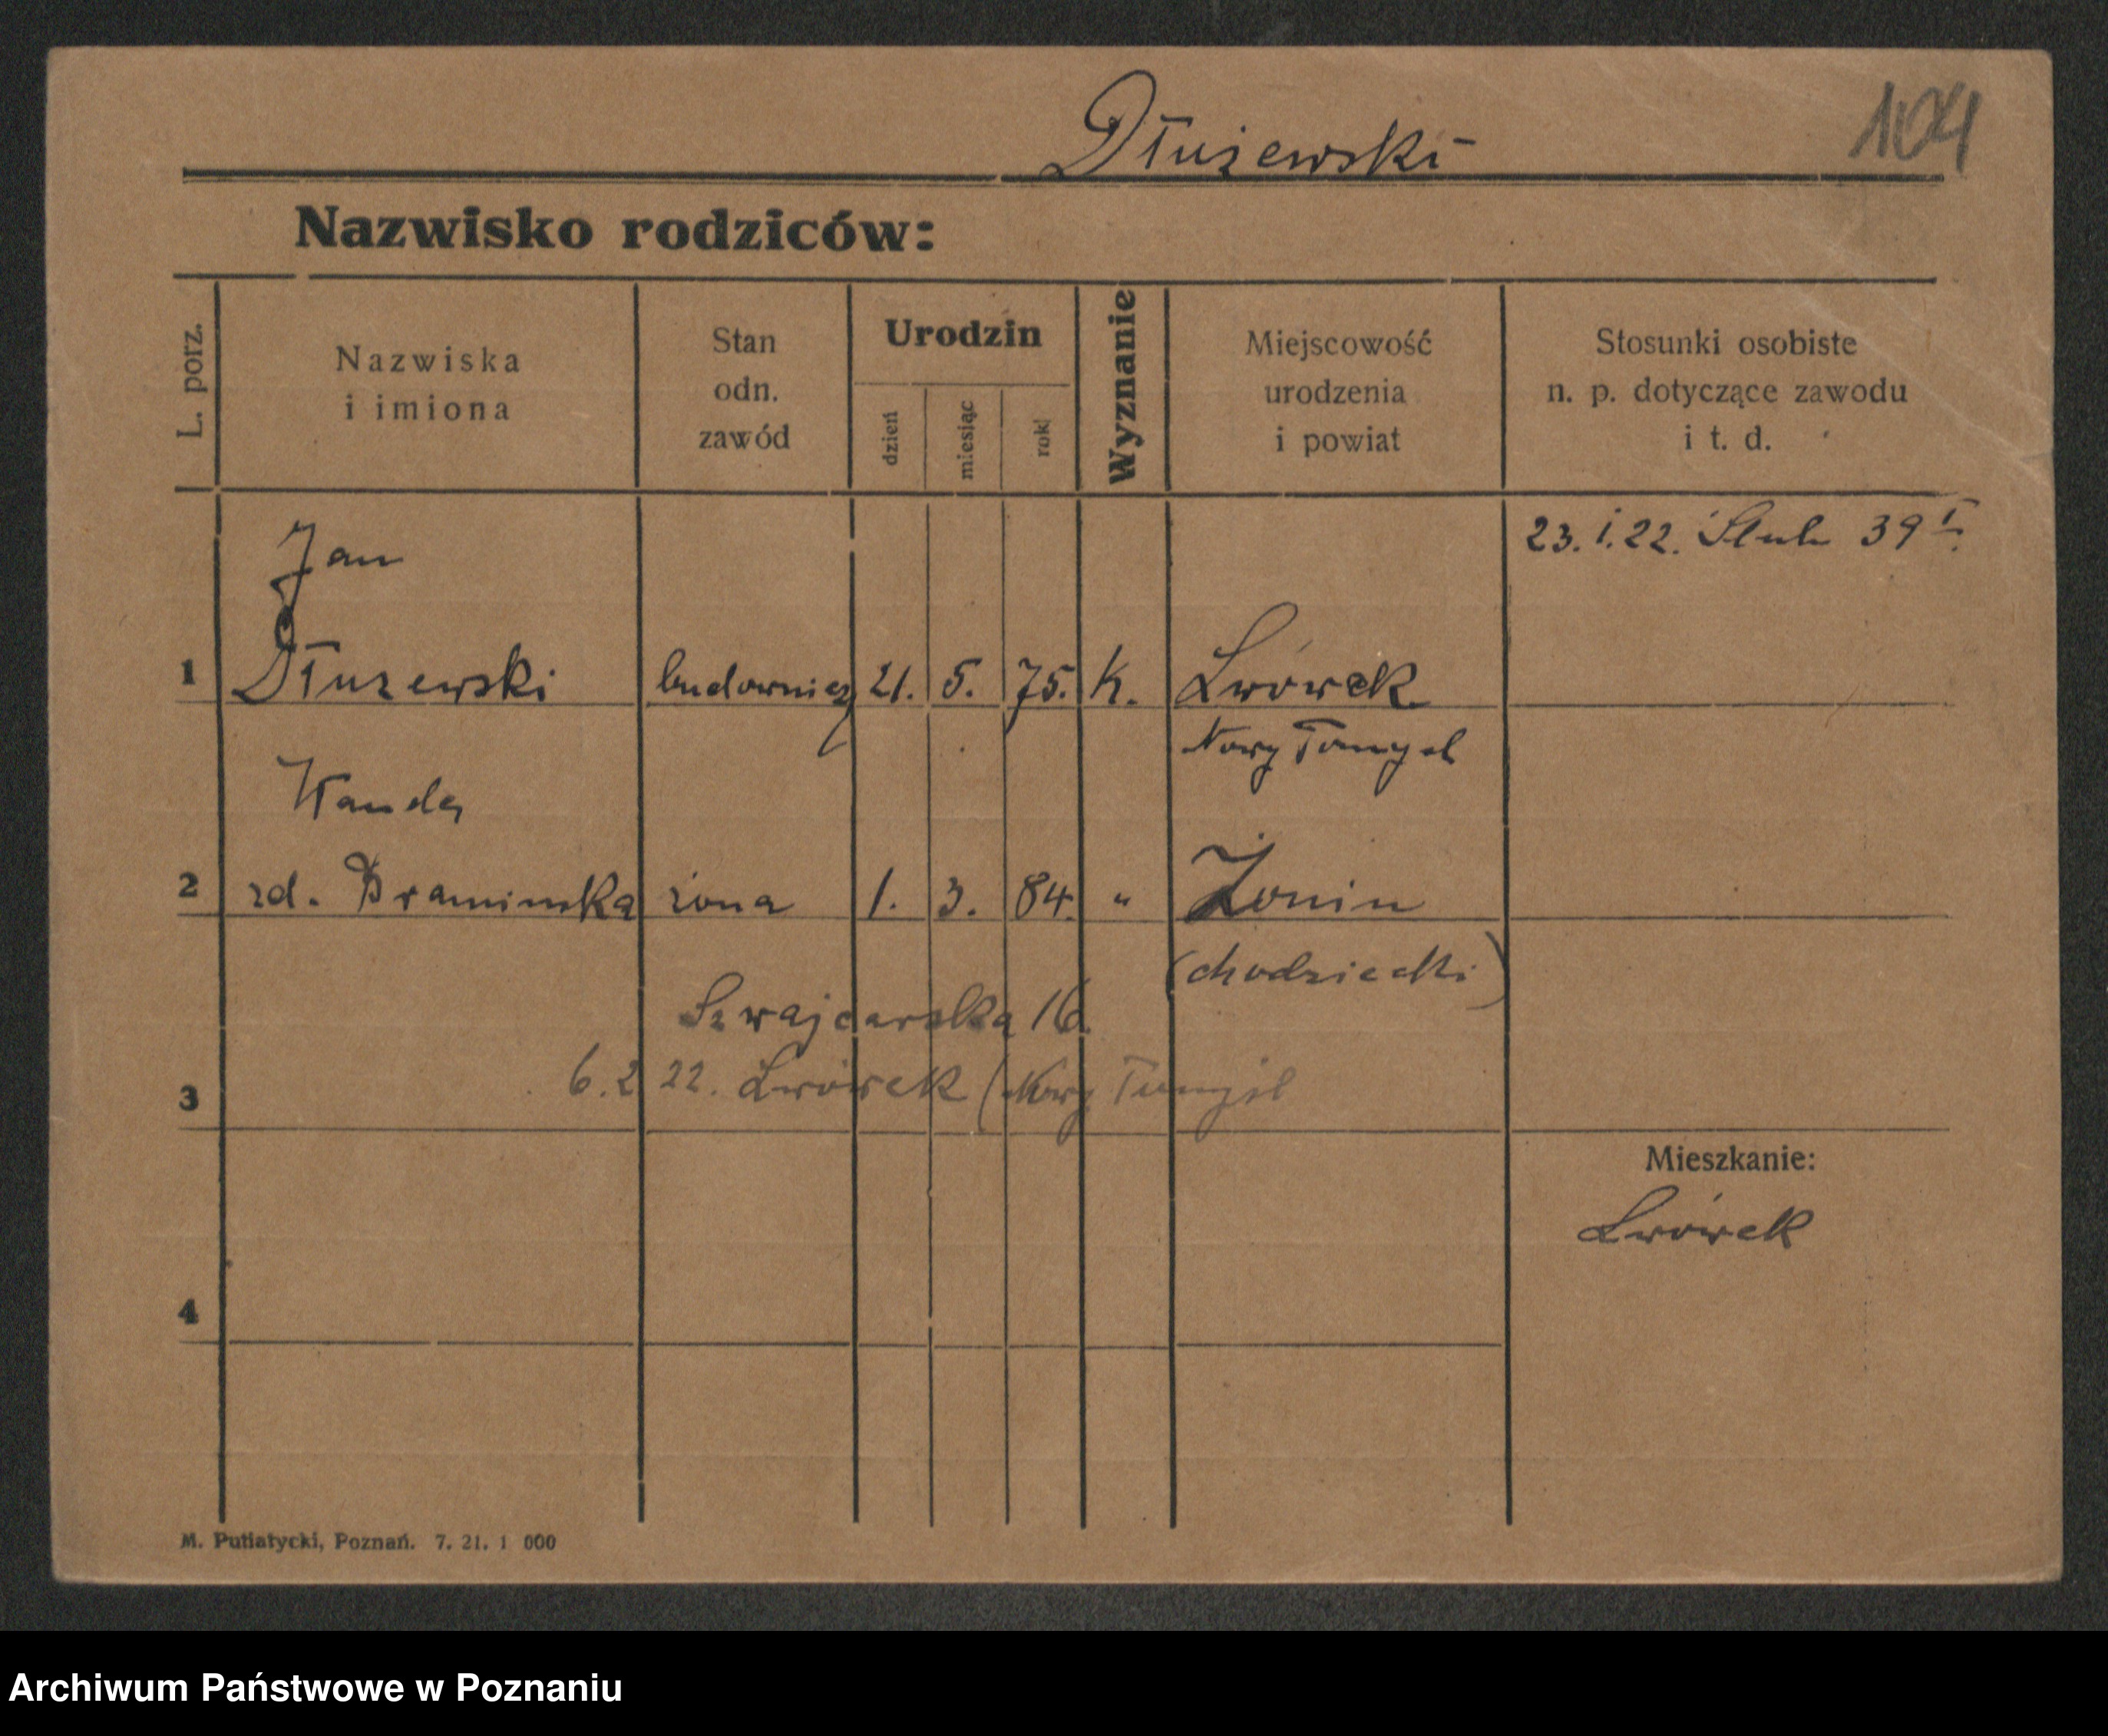 Dłużewski
104
Nazwisko rodziców:
L. porz.
Nazwiska
i imiona
Stan
odn.
zawód
Urodzin
dzień
miesiąc
rok
Wyznanie
Miejscowość
urodzenia
i powiat
Stosunki osobiste
n. p. dotyczące zawodu
i t. d.
23. I. 22. Ślub 39 I.
Jan
1 Dłużewski budowniczy 21. 5. 75. k. Lwówek
Nowy Tomyśl
Wanda
2 zd. żona 1. 3. 84. " Żonin
(chodzieski)
Szwajcarska 16.
3 6. 2 22. Lwówek (Nowy Tomyśl
Mieszkanie:
Lwówek
4
M. Putiatycki, Poznań. 7. 21. 1 000
Archiwum Państwowe w Poznaniu